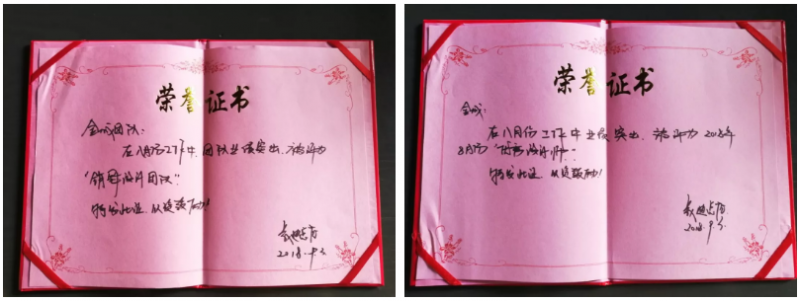 荣誉证书
金城团队：
在八月份工作中，团队业绩突出，被评为
"销冠设计团队"
特发此证，从兹鼓励！
2018.9.3
荣誉证书
金城：
在八月份工作中业绩突出，被评为2018年
8月份"设计师"．
特发此证，从兹鼓励！
2018.9.3.